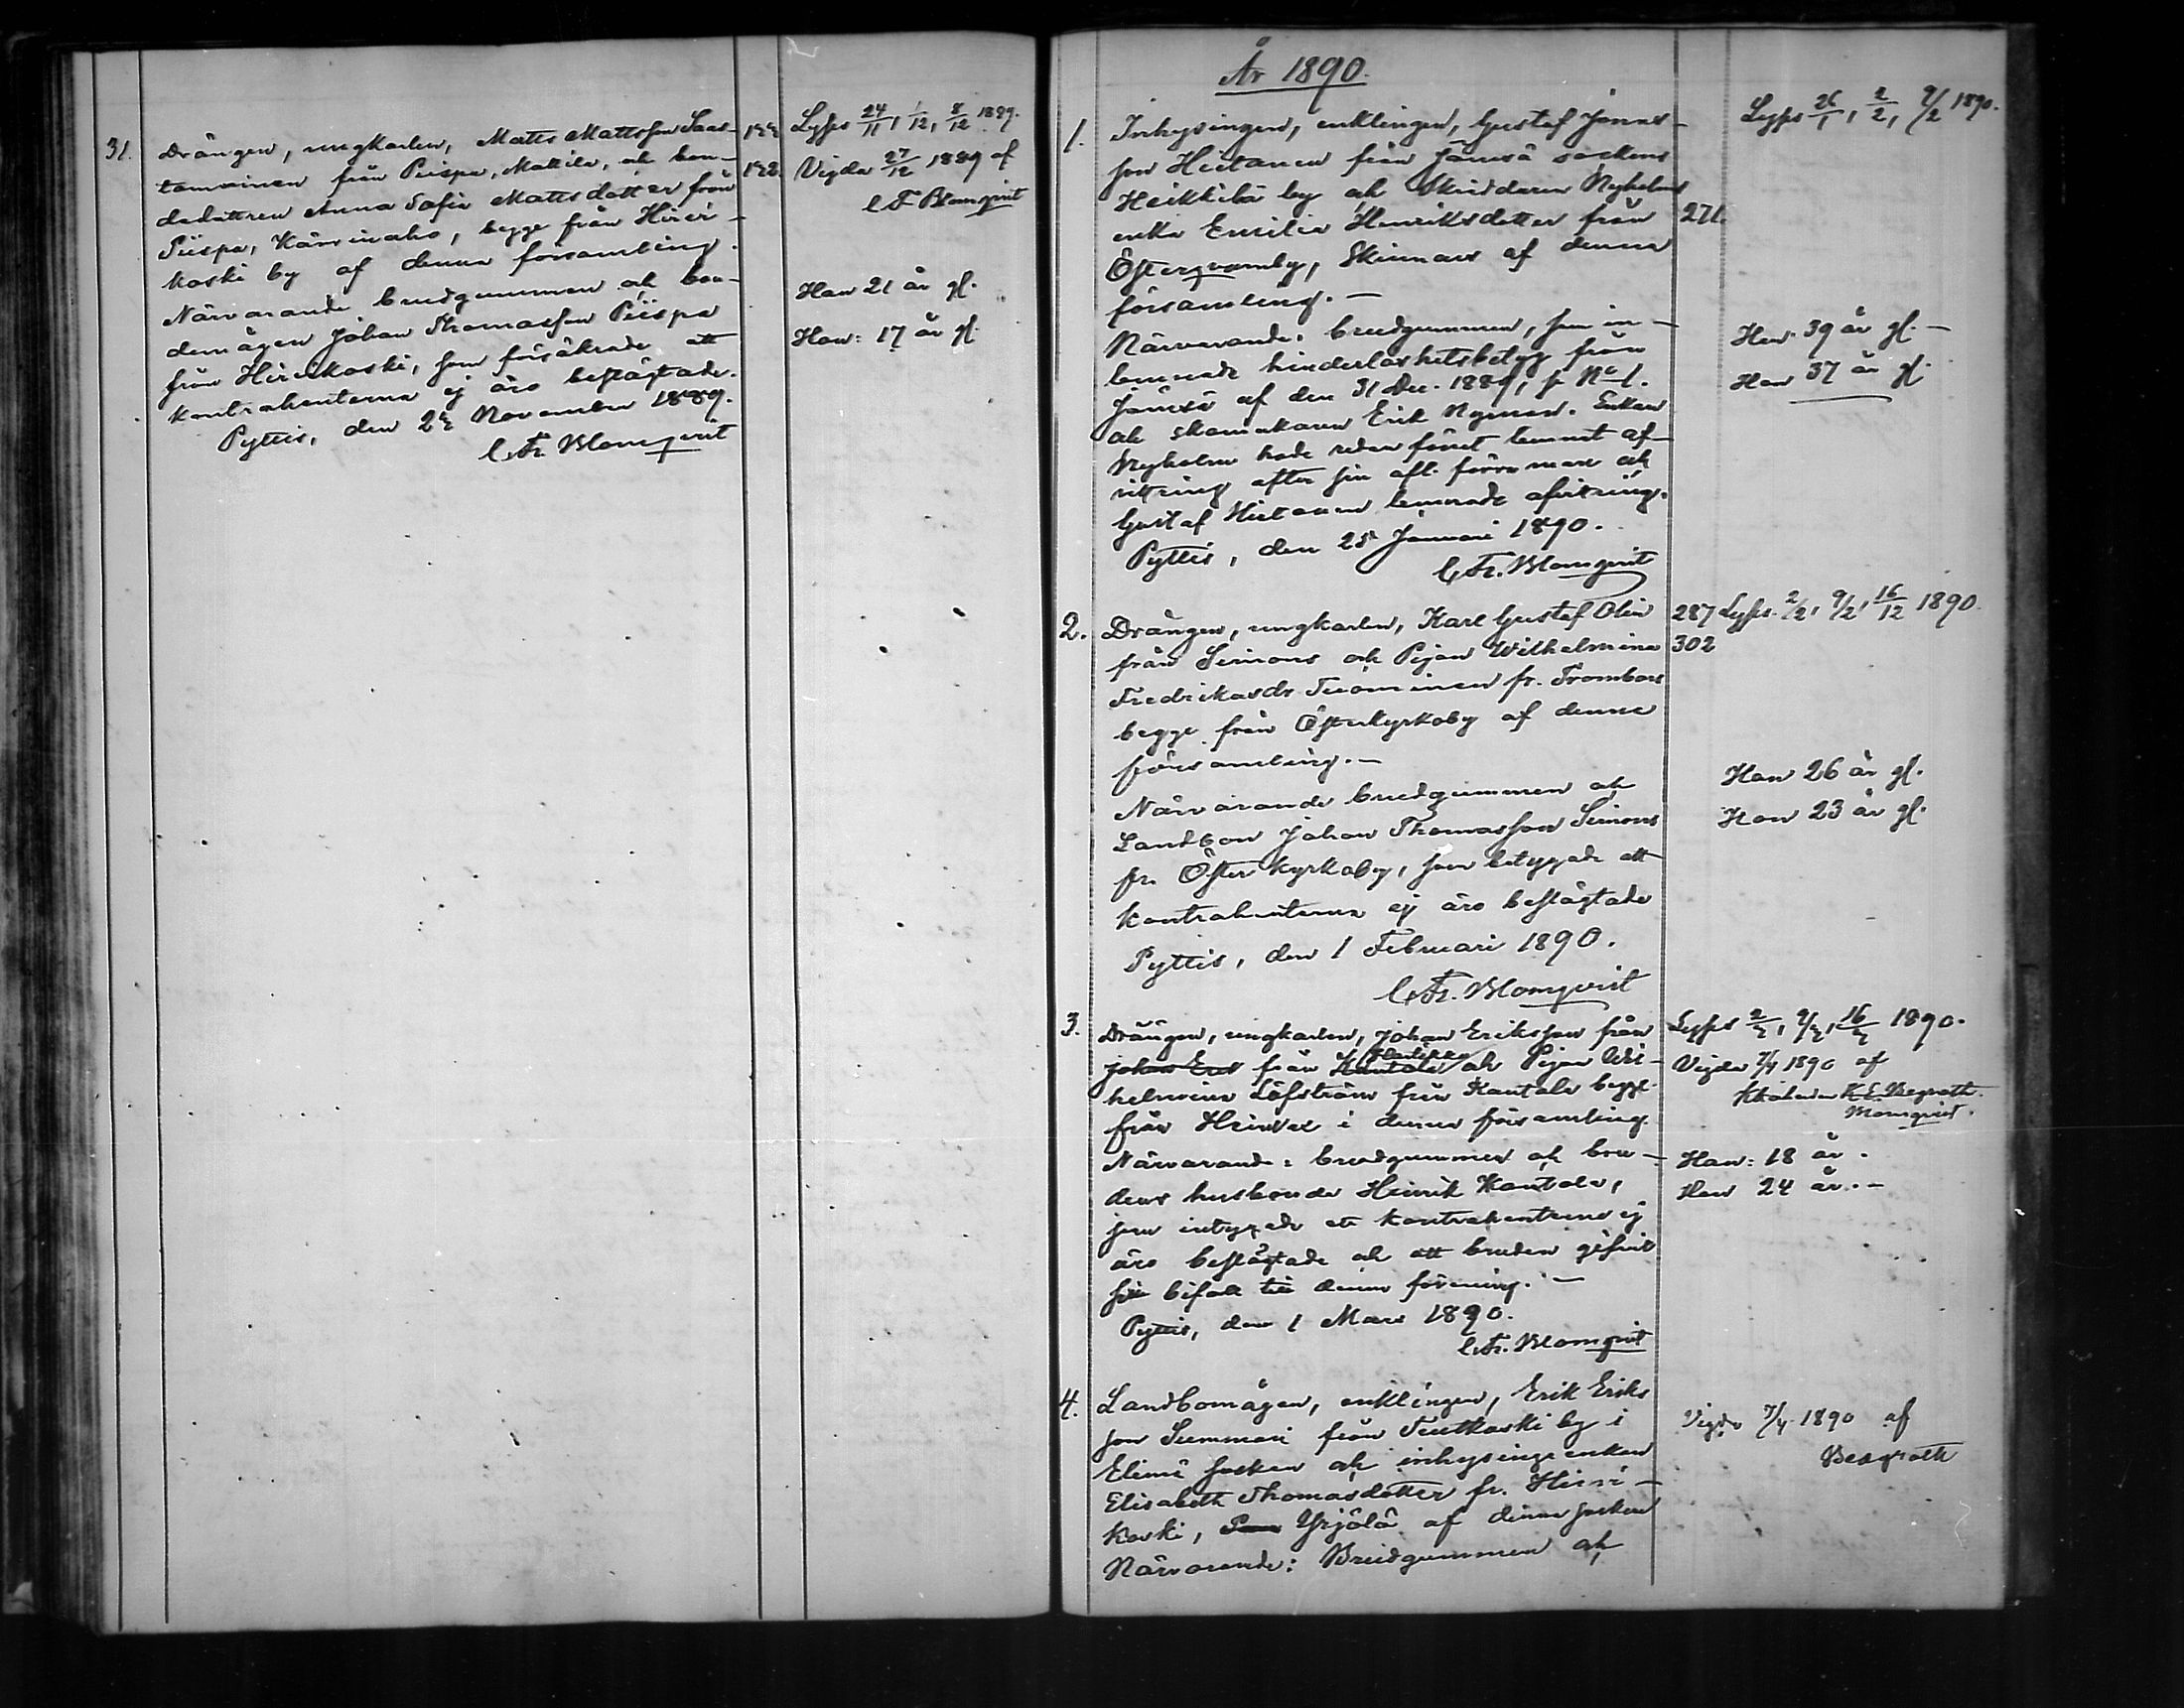 31.
Drängen, ungkarlen, Matts Mattsson Saas-
tamoinen från Piispa, Mattila, och bon-
dedottren Anna Sofia Mattsdotter från
Piispa, Kärsinaho, begge från Hirvi-
koski by af denna församling.
Närvarande brudgummen och bon-
demågen Johan Thomasson Piispa
från Hirvikoski, som försäkrade att
kontrahenterna ej äro beslägtade.
Pyttis, den November 1889.
C. Fr. Blomqvist
Lyses 24/11, 1/12, 8/12 1889.
Vigda 27/12 1889 af
C F Blomqvist
Han 21 år gl.
Hon: 17 år gl.
År 1890.
1.
Inhysingen, enklingen, Gustaf Jonas-
son Hietanen från Jämsä sockens
Heikkilä by och Skräddaren Nyholms
enka Emilia Henriksdotter från
Österqvarnby, Skinnars af denna
församling. —
Närvarande: brudgummen, som in-
lemnade hinderlöshetsbetyg från
Jämsä af den 31 Dec. 1889, p No 1.
och skomakaren Erik Nyman. Enkan
Nyholm hade redan förut lemnat af-
vittring efter sin afl. förra man och
Gustaf Hietanen lemnade afvittring.
Pyttis, den 25 Januari 1890.
C. Fr. Blomqvist
271.
Lyses 26/1, 2/2, 9/2 1890.
Han 39 år gl. —
Hon 37 år gl.
2.
Drängen, ungkarlen, Karl Gustaf Olin
från Simons och Pigan Wilhelmina
Fredrikasdr Tuominen fr. Trombars
begge från Österkyrkoby af denna
församling. —
Närvarande brudgummen och
Landbon Johan Thomasson Simons
fr. Öster kyrkoby, som betygade att
kontrahenterna ej äro beslägtade
Pyttis, den 1 Februari 1890.
C. Fr. Blomqvist
287 Lyses. 2/2, 9/2, 16/12 1890
302
Han 26 år gl.
Hon 23 år gl.
3.
Drängen, ungkarlen, Johan Eriksson från
Johan Erik från Kantola och Pigan Wil-
helmina Löfström från Kantola begge
från Heinlax i denna församling.
Närvarande: brudgummen och bru-
dens husbonde Henrik Kantola,
som intygade att kontrahenterna ej
äro beslägtade och att bruden gifvit
sin bifall till denna förening. —
Pyttis, den 1 Mars 1890.
C. Fr. Blomqvist
Lyses 2/3, 9/3, 16/3 1890.
Vigda 7/4 1890 af
Blomqvist.
Han: 18 år.
Hon 24 år. —
4.
Landbomågen, enklingen, Erik Eriks
son Summari från Teutkoski by i
Elimä socken och inhysinge enkan
Elisabeth Thomasdotter fr. Hirvi-
koski, Yrjölä af denna socken
Närvarande: Brudgummen och
Vigda 7/4 1890 af
Bergroth